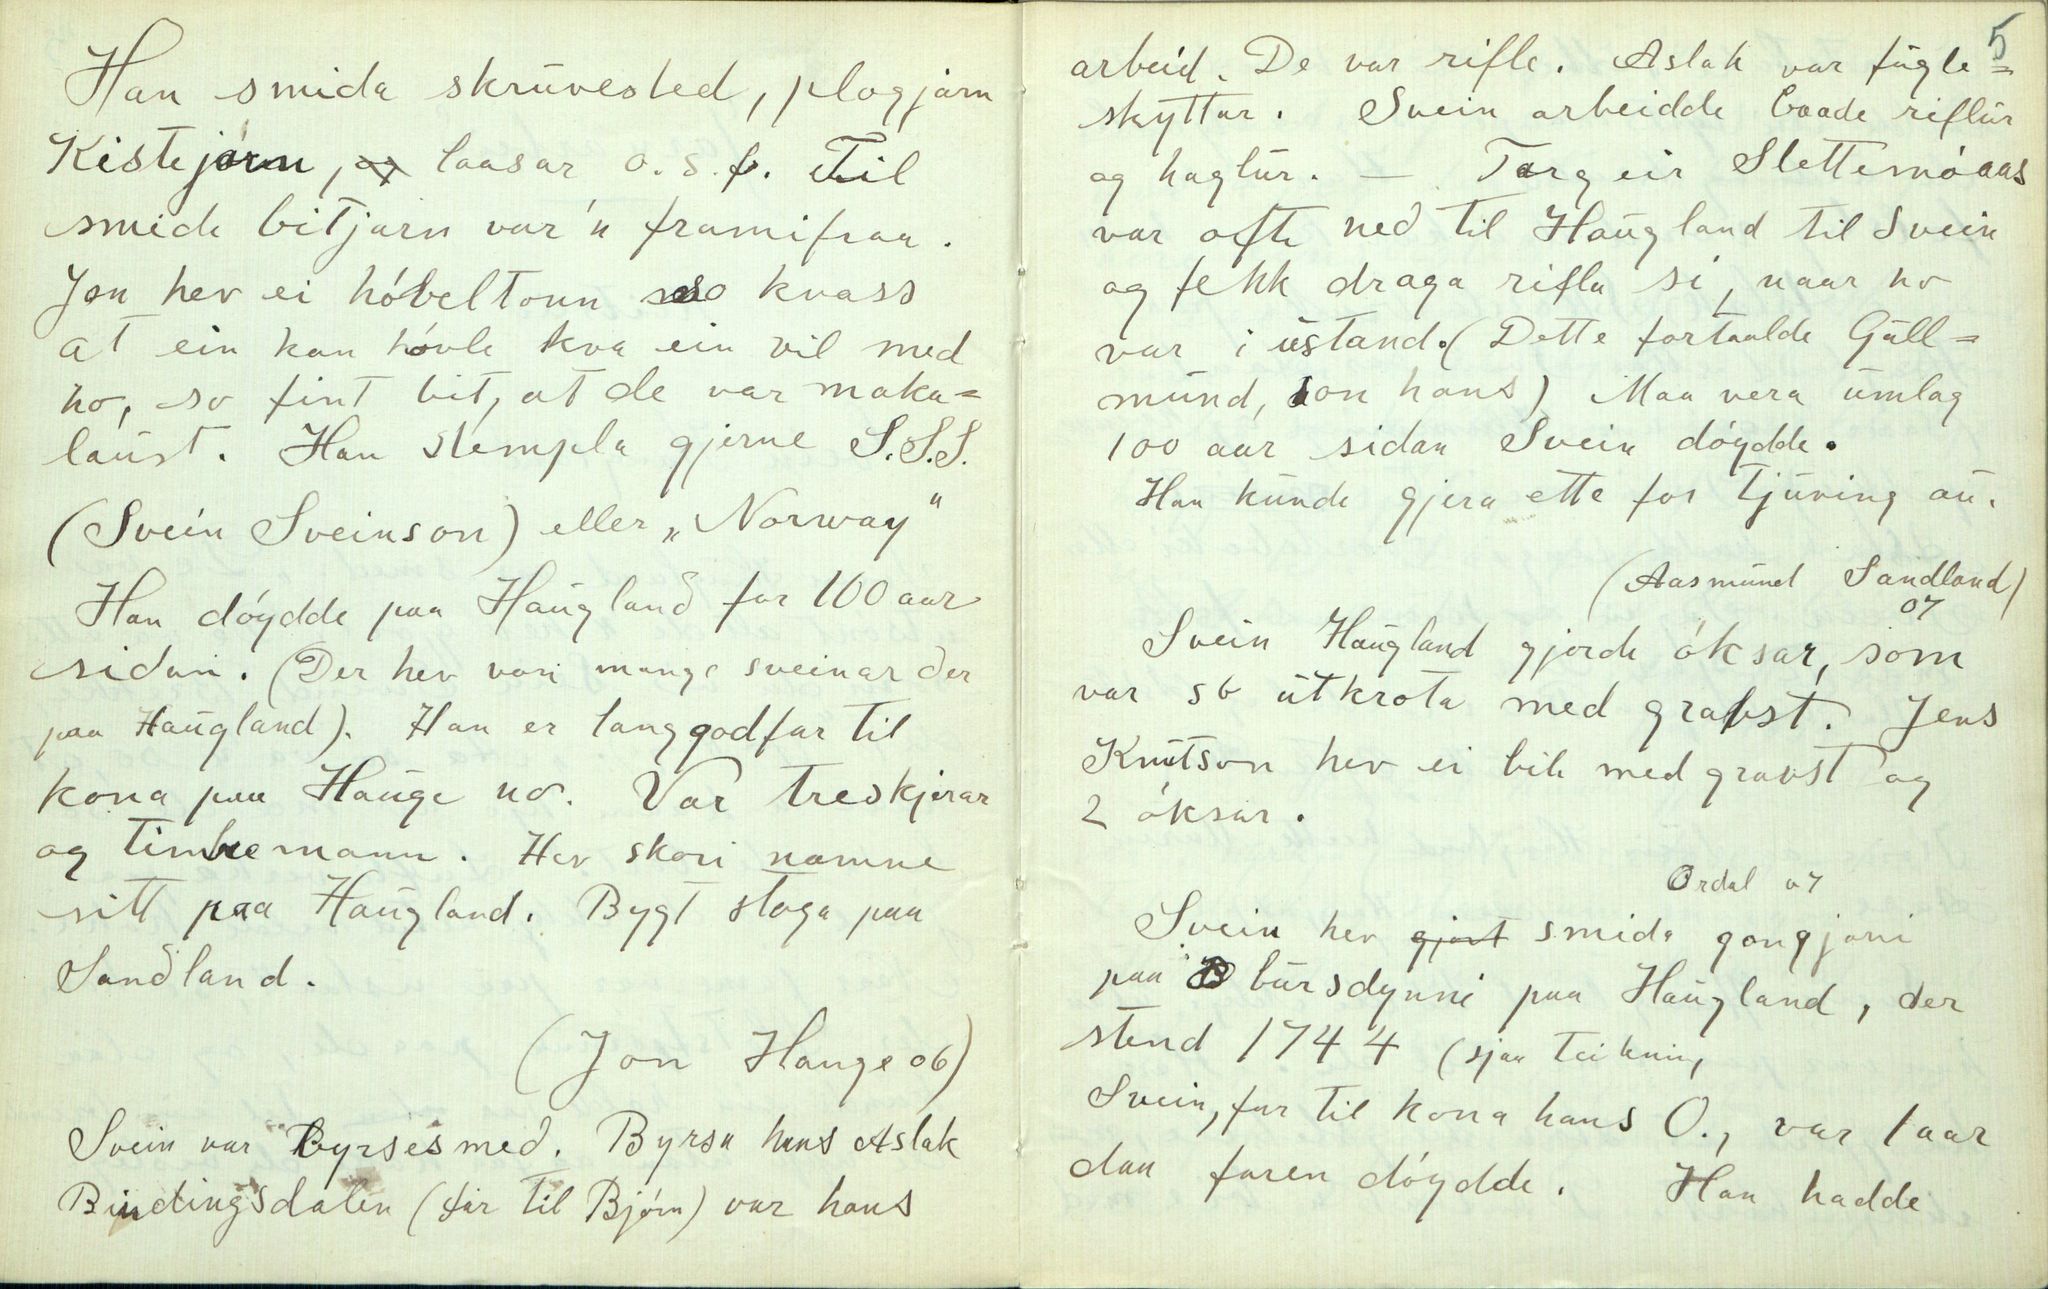 Han smida skrúvested, plogjarn
Kistejarn, og laasar o.s.f. Til
smide bitjarn var'n framifraa.
Jon hev ei hóbeltonn so kvass
at ein kan hóvle kva ein vil med
ho, so fint bit, at de var maka=
laust. Han stempla gjerne S.S.S.
(Svein Sveinson) eller „Norway"
Han dóydde paa Haugland for 100 aar
sidan. (Der hev vori mange sveinar der
paa Haugland). Han er langgodfar til
kona paa Hauge no. Var treskjerar
og timbremann. Hev skori namne
sitt paa Haugland. Bygt stoga paa
Sandland.
(Jon Hauge 06)
Svein var Byrsesmed. Byrsa hans Aslak
Bindingsdalen (far til Bjórn) var hans
5
arbeid. De var rifle. Aslak var fugle=
skyttar. Svein arbeidde baade riflur
og haglur. — Targeir Slettemóaas
var ofte ned til Haugland til Svein
og fekk draga rifla si, naar ho
var i ustand. (Dette fortaalde Gull=
mund, son hans) Maa vera umlag
100 aar sidan Svein dóydde.
Han kunde gjera ette for tjuving au.
(Aasmund Sandland)
07
Svein Haugland gjorde óksar, som
var so utkrota med gravst. Jens
Knutson hev ei bile med gravst og
2 óksar.
Ordal 07
Svein hev gjort smida gongjarni
paa bursdynni paa Haugland, der
stend 1744 (sjaa teikning
Svein, far til kona hans O., var 1 aar
daa faren dóydde. Han hadde